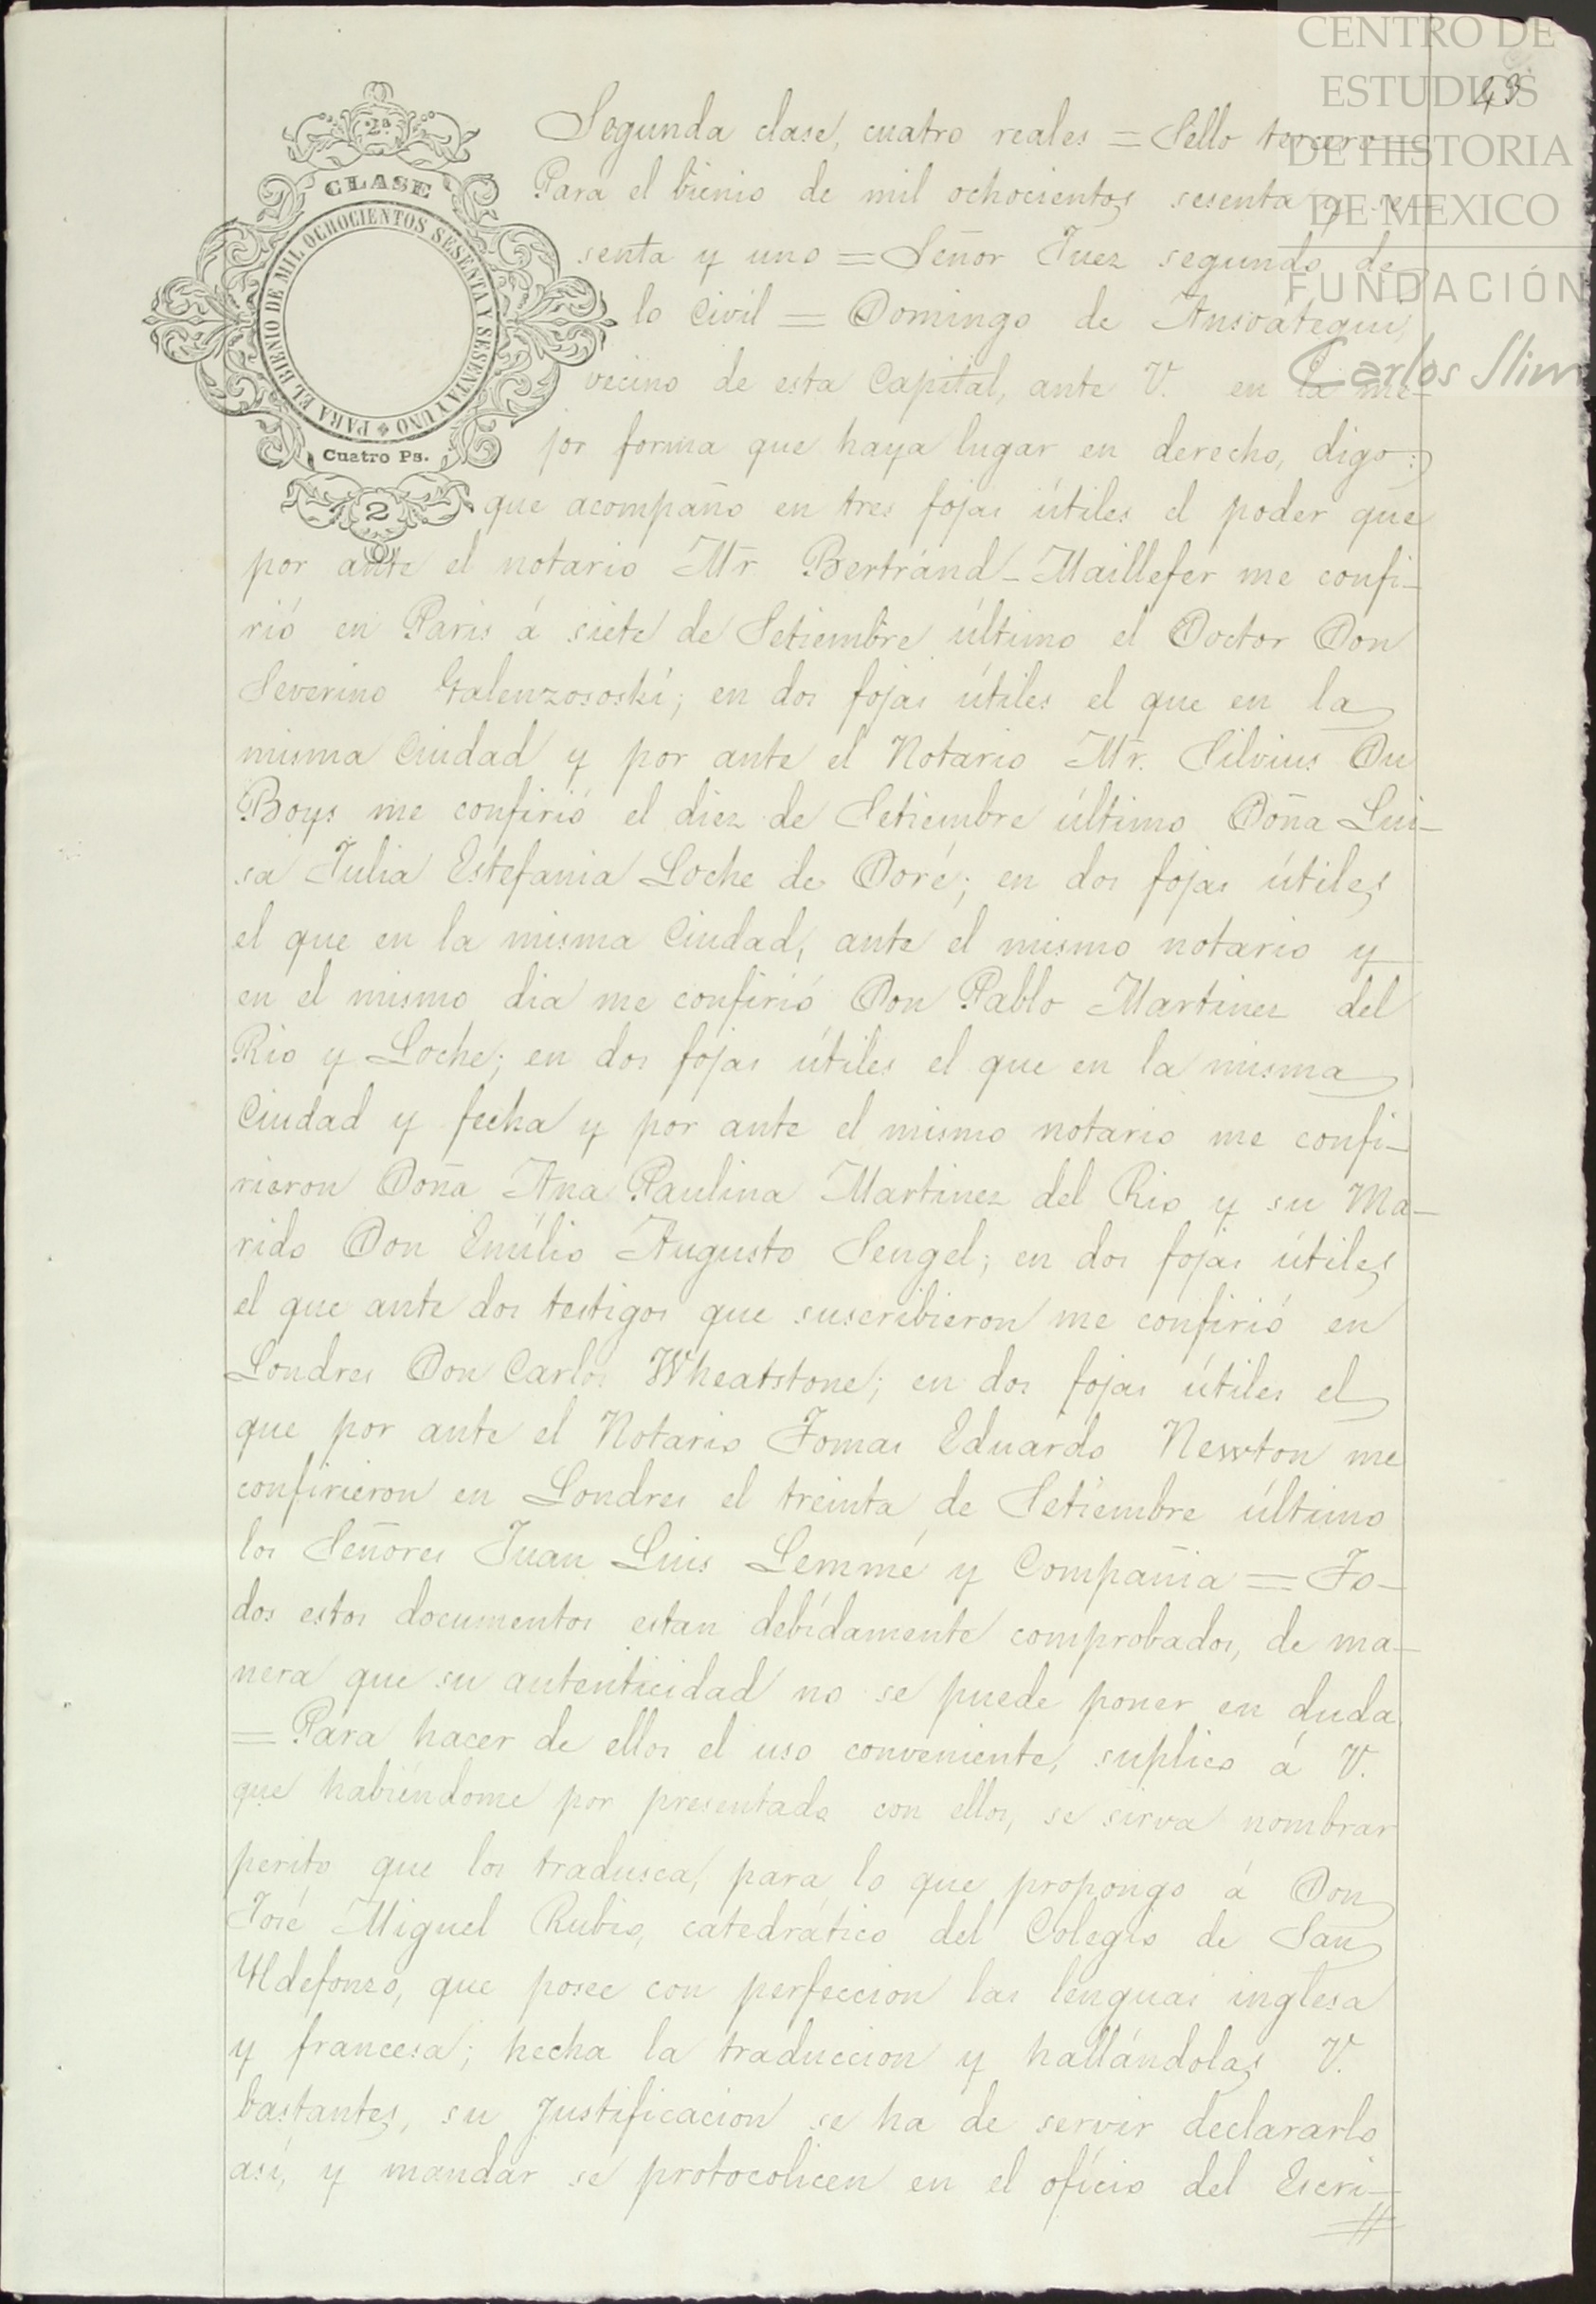 CENTRO DE
ESTUDIOS
DE HISTORIA
DE MEXICO
FUNDACIÓN
Carlos Slim
49
2ª
CLASE
PARA EL BIENIO DE MIL OCHOCIENTOS SESENTA Y SESENTA Y UNO
Cuatro Ps.
2
Segunda clase, cuatro reales = Sello tercero =
Para el bienio de mil ochocientos sesenta y se-
senta y uno = Señor Juez segundo de
lo Civil = Domingo de Ansoategui,
vecino de esta Capital, ante V. en la me-
jor forma que haya lugar en derecho, digo:
que acompaño en tres fojas útiles el poder que
por ante el notario Mr Bertránd-Maillefer me confi-
rió en Paris á siete de Setiembre último el Doctor Don
Severino Galenzososki; en dos fojas útiles el que en la
misma Ciudad y por ante el Notario Mr. Silvius Du
Boys me confirió el diez de Setiembre último Doña Lui-
sa Julia Estefania Loche de Doré; en dos fojas útiles
el que en la misma Ciudad, ante el mismo notario y
en el mismo dia me confirió Don Pablo Martinez del
Rio y Loche; en dos fojas útiles el que en la misma
Ciudad y fecha y por ante el mismo notario me confi-
rieron Doña Ana Paulina Martinez del Rio y su Ma-
rido Don Emílio Augusto Sengel; en dos fojas útiles
el que ante dos testigos que suscribieron me confirió en
Londres Don Carlos Wheatstone; en dos fojas útiles el
que por ante el Notario Tomas Eduardo Newton me
confirieron en Londres el treinta de Setiembre último
los Señores Juan Luis Lemmé y Compañia = To-
dos estos documentos estan debídamente comprobados, de ma-
nera que su autenticidad no se puede poner en duda.
= Para hacer de ellos el uso conveniente, suplico á V.
que habiéndome por presentado con ellos, se sirva nombrar
perito que los tradusca, para lo que propongo á Don
José Miguel Rubio, catedrático del Colegio de San
Yldefonso, que posee con perfeccion las lenguas inglesa
y francesa; hecha la traduccion y hallándolas V.
bastantes, su Justificacion se ha de servir declararlo
así, y mandar se protocolicen en el oficio del Escri-